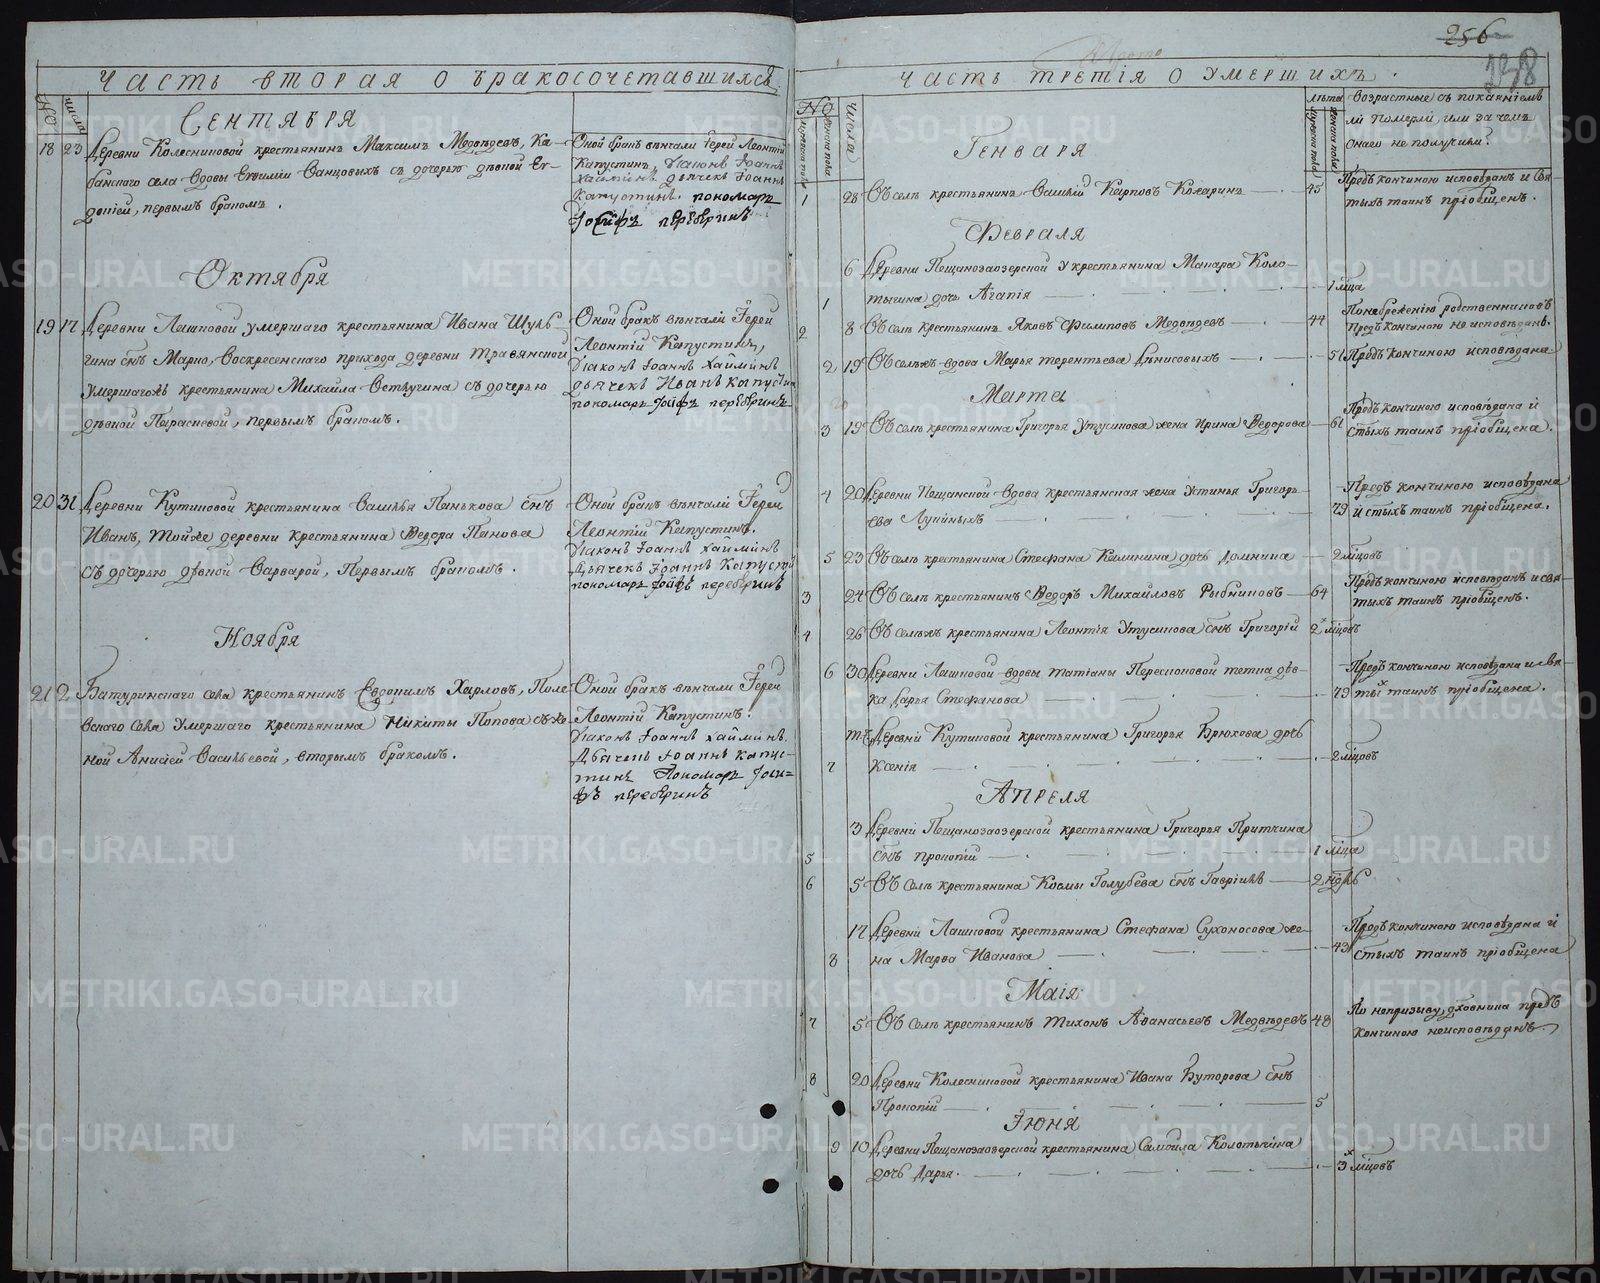 Часть вторая о бракосочетавшихся
№ числа
Сентября
18 23 Деревни Колесниковой крестьянинъ Максимъ Медведевъ, Ка-
банскаго села вдовы Евфиміи Санцовыхъ съ дочерью девкой Ев-
докіей, первымъ бракомъ.
Оной бракъ венчали Іерей Леонтій
Капустинъ, Діаконъ Іоаннъ
Хайминъ дьячекъ Іоаннъ
Капустинъ. пономарь
Іосифъ перебринъ
Октября
19 17 Деревни Лашковой умершаго крестьянина Ивана Шуль-
гина снъ Марко, Воскресенскаго прихода деревни Травянской
умершагожъ крестьянина Михайла съ дочерью
девкой Параскевой, первымъ бракомъ.
Оной бракъ венчали Іерей
Леонтій Капустинъ,
Діаконъ Іоаннъ Хайминъ
дьячекъ Иванъ Капустин
пономарь Іосифъ перебринъ
20 31 Деревни Кутиковой крестьянина Василья Панькова снъ
Иванъ, тойже деревни крестьянина Ѳедора Панова
съ дочерью девкой Варварой, Первымъ бракомъ.
Оной бракъ венчали Іерей
Леонтій Капустинъ.
Діаконъ Іоаннъ Хайминъ
Дьячекъ Іоаннъ Капусти
пономарь Іосифъ перебринъ
Ноября
21 2 Батуринскаго села крестьянинъ Евдокимъ Харловъ, Поле
вскаго села умершаго крестьянина Никиты Попова съ же-
ной Анисіей Васильевой, вторымъ бракомъ.
Оной бракъ венчали Іерей
Леонтій Капустинъ.
Діаконъ Іоаннъ Хайминъ
Дьячекъ Іоаннъ Капус-
тинъ Пономарь Іоси-
фъ перебринъ
256
Часть третія о умершихъ.
№ Мужеска пола Женска пола Числа
лета Мужеска пола Женска пола
возрастные съ покаяніемъ
ли померли, или за чемъ
онаго не получили?
Генваря
1 28 Въ селе крестьянинъ Василій Карповъ Кокаринъ 45
Предъ кончиною исповеданъ и свя-
тыхъ таинъ пріобщенъ.
Февраля
6 Деревни Пещанозаозерской у крестьянина Макара Коло-
1 тыгина дочь Агапія 1 мца
2 8 Въ селе крестьянинъ Яковъ Филиповъ Медведевъ 44
По небреженію родственниковъ
Предъ кончиною не исповеданъ.
2 19 Въ сележъ вдова Марья терентьева Денисовыхъ 51 Предъ кончиною исповедана
Марта
3 19 Въ селе крестьянина Григорья Утусикова жена Ирина Ѳедорова 61
Предъ кончиною исповедана и
стыхъ таинъ пріобщена.
4 20 Деревни Пещанской вдова крестьянская жена Устинья Григорь-
ева Лукиныхъ 79
Предъ кончиною исповедана
и стыхъ таинъ пріобщена.
5 23 Въ селе крестьянина Стефана Калинина дочь Домника 2 мцовъ
3 24 Въ селе крестьянинъ Ѳедоръ Михайловъ Рыбниковъ 64
Предъ кончиною исповеданъ и свя-
тыхъ таинъ пріобщенъ.
4 26 Въ сележъ крестьянина Леонтія Утусикова снъ Григорій 2 мцовъ
6 30 Деревни Лашковой вдовы татіаны тетка дев-
ка Дарья Стефанова 79
Предъ кончиною исповедана и свя-
тыхъ таинъ пріобщена.
тжъ Деревни Кутиковой крестьянина Григорья Брюхова дочь
7 Ксенія 2 мцовъ
Апреля
3 Деревни Пещанозаозерской крестьянина Григорья Притчина
5 снъ прокопій 1 мца
6 5 Въ селе крестьянина Космы Голубева снъ Гавріилъ 2 ндль
17 Деревни Лашковой крестьянина Стефана Сухоносова же-
8 на Марѳа Иванова 43
Предъ кончиною исповедана и
стыхъ таинъ пріобщена
Маія
7 5 Въ селе крестьянинъ Тихонъ Аѳанасьевъ Медведевъ 48
По непризыву духовника предъ
кончиною неисповеданъ.
8 20 Деревни Колесниковой крестьянина Ивана Буторова снъ
Прокопій 5
Іюня
9 10 Деревни Пещанозаозерской крестьянина Самойла Колотыгина
дочь Дарья. 3 мцовъ
METRIKI.GASO-URAL.RU